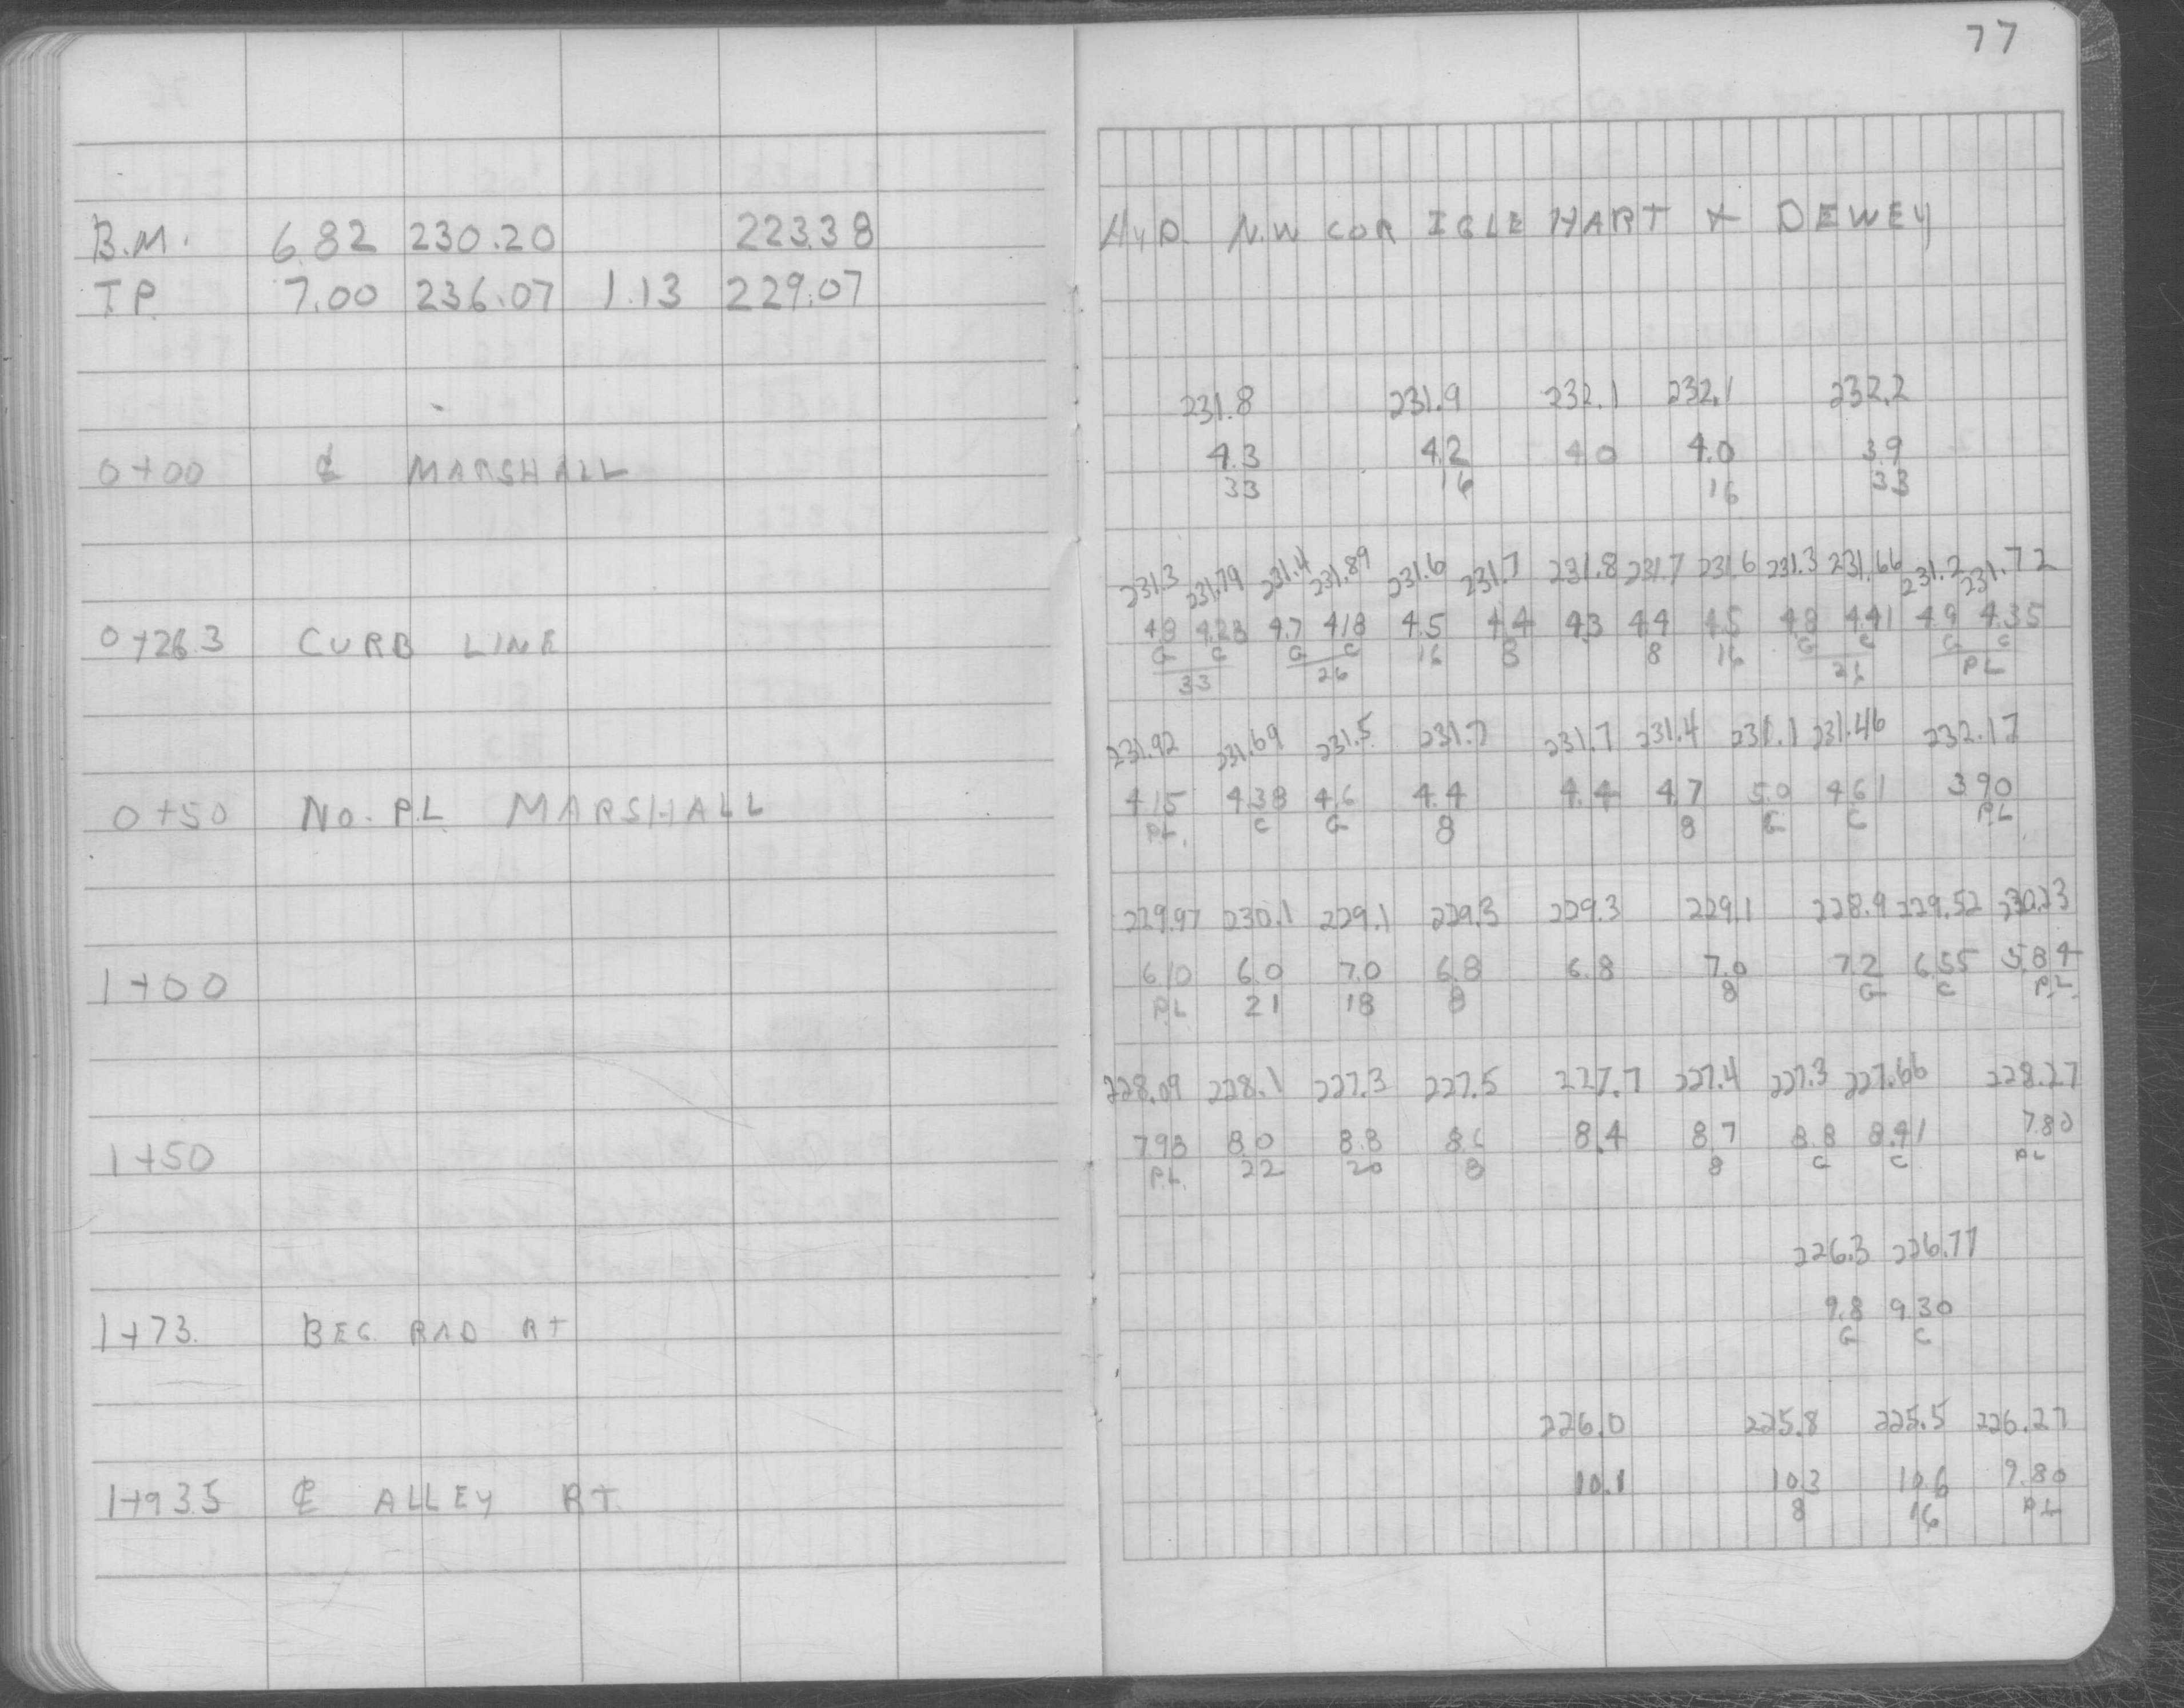 77
B.M. 6.82 230.20 223.38 HYD. N.W COR IGLEHART & DEWEY
T.P. 7.00 236.07 1.13 229.07
231.8 231.9 232.1 232.1 232.2
0+00 ℄ MARSHALL 4.3 4.2 4.0 4.0 3.9
33 16 16 33
231.3 231.79 231.4 231.89 231.6 231.7 231.8 231.7 231.6 231.3 231.66 231.2 231.72
0+26.3 CURB LINE 4.8 4.28 4.7 4.18 4.5 4.4 4.3 4.4 4.5 4.8 4.41 4.9 4.35
G C G C 16 8 8 16 G C G C
33 26 26 PL
231.92 231.69 231.5 231.7 231.7 231.4 231.1 231.46 232.17
0+50 NO. P.L MARSHALL 4.15 4.38 4.6 4.4 4.4 4.7 5.0 4.61 3.90
P.L. C G 8 8 G C P.L
229.97 230.1 229.1 229.3 229.3 229.1 228.9 229.52 230.23
1+00 6.10 6.0 7.0 6.8 6.8 7.0 7.2 6.55 5.84
P.L 21 18 8 8 G C P.L.
228.09 228.1 227.3 227.5 227.7 227.4 227.3 227.66 228.27
1+50 7.98 8.0 8.8 8.6 8.4 8.7 8.8 8.41 7.80
P.L. 22 20 8 8 G C P.L
226.3 226.77
1+73. BEG. RAD RT 9.8 9.30
G C
226.0 225.8 225.5 226.27
1+93.5 ℄ ALLEY RT. 10.1 10.3 10.6 9.80
8 16 P.L